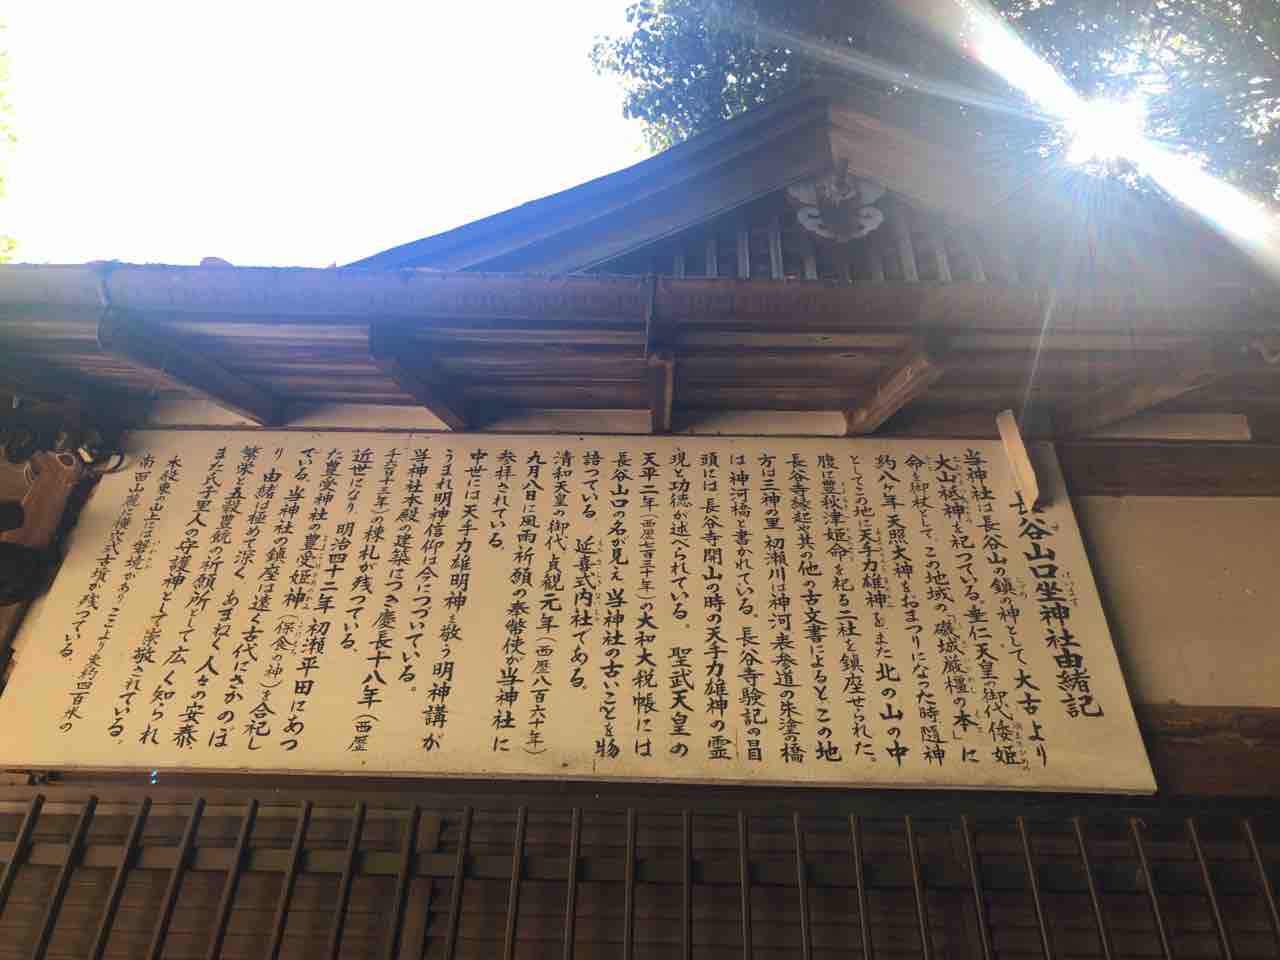 長谷山口坐神社由緒記
当神社は長谷山の鎮の神として太古より
大山祗神を祀っている。垂仁天皇の御代倭姫
命を御杖として、この地域の「磯城厳橿の本」に
約八ヶ年天照大神をおまつりになった時、随神
としてこの地に天手力雄神を、また北の山の中
腹に豊秋津姫命を祀る二社を鎮座せられた。
長谷寺縁起や其の他の古文書によるとこの地
方は三神の里、初瀬川は神河、表参道の朱塗の橋
は神河橋と書かれている。長谷寺験記の冒
頭には、長谷寺開山の時の天手力雄神の霊
現と功徳が述べられている。聖武天皇の
天平二年(西歴七百三十年)の大和大税帳には
長谷山口の名が見え、当神社の古いことを物
語っている。延喜式内社である。
清和天皇の御代、貞観元年(西歴八百六十年)
九月八日に風雨祈願の奉幣使が当神社に
参拝されている。
中世には天手力雄明神を敬う明神講が
うまれ明神信仰は今につづいている。
当神社本殿建築につき慶長十八年(西歴
千六百十三年)の棟札が残っている。
近世になり、明治四十二年、初瀬平田にあっ
た豊受神社の豊受姫神(保食の神)を合祀し
ている。当神社の鎮座は遠く古代にさかのぼ
り、由緒は極めて深く、あまねく人々の安泰
繁栄と五穀豊饒の祈願所として広く知られ
また氏子里人の守護神として崇敬されている。
本殿東の山上には磐境があり、ここより東約四百米の
南面山麓に横穴式古墳が残っている。